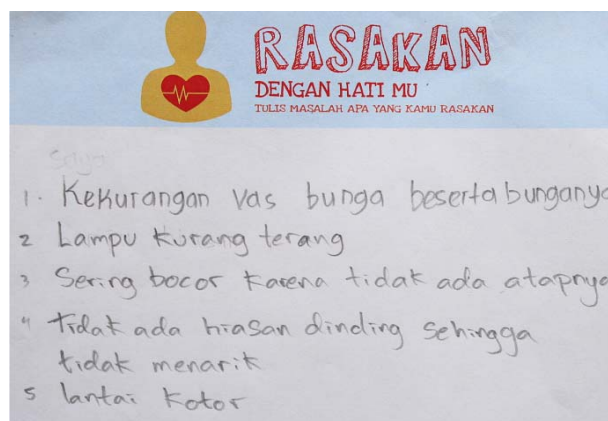 RASAKAN
DENGAN HATI MU
TULIS MASALAH APA YANG KAMU RASAKAN
Saya
1. Kekurangan vas bunga beserta bunganya
2 Lampu kurang terang
3 Sering bocor karena tidak ada atapnya
4 Tidak ada hiasan dinding sehingga
tidak menarik
5 lantai kotor